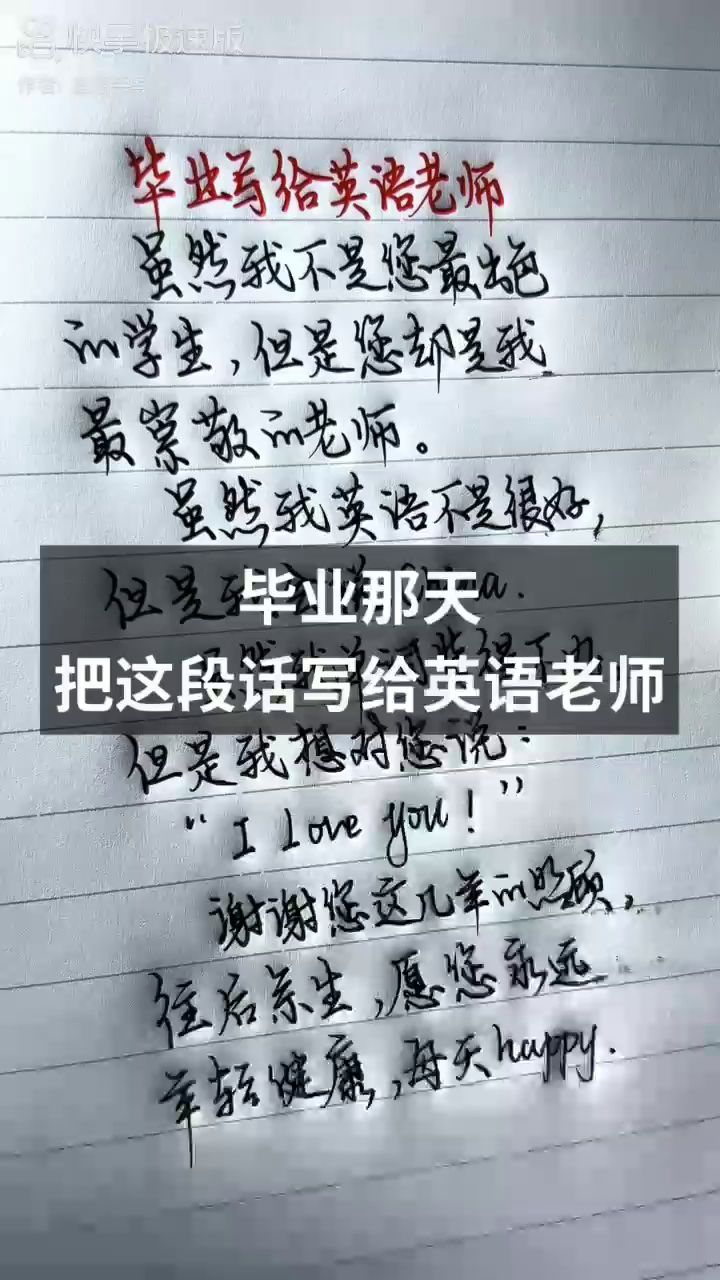 快手极速版
毕业写给英语老师
虽然我不是您最出色
的学生，但是您却是我
最崇敬的老师。
虽然我英语不是很好，
但是我
毕业那天
把这段话写给英语老师
但是我想对您说：
“I Love you！”
谢谢您这几年的照顾，
往后余生，愿您永远
年轻健康，每天happy.